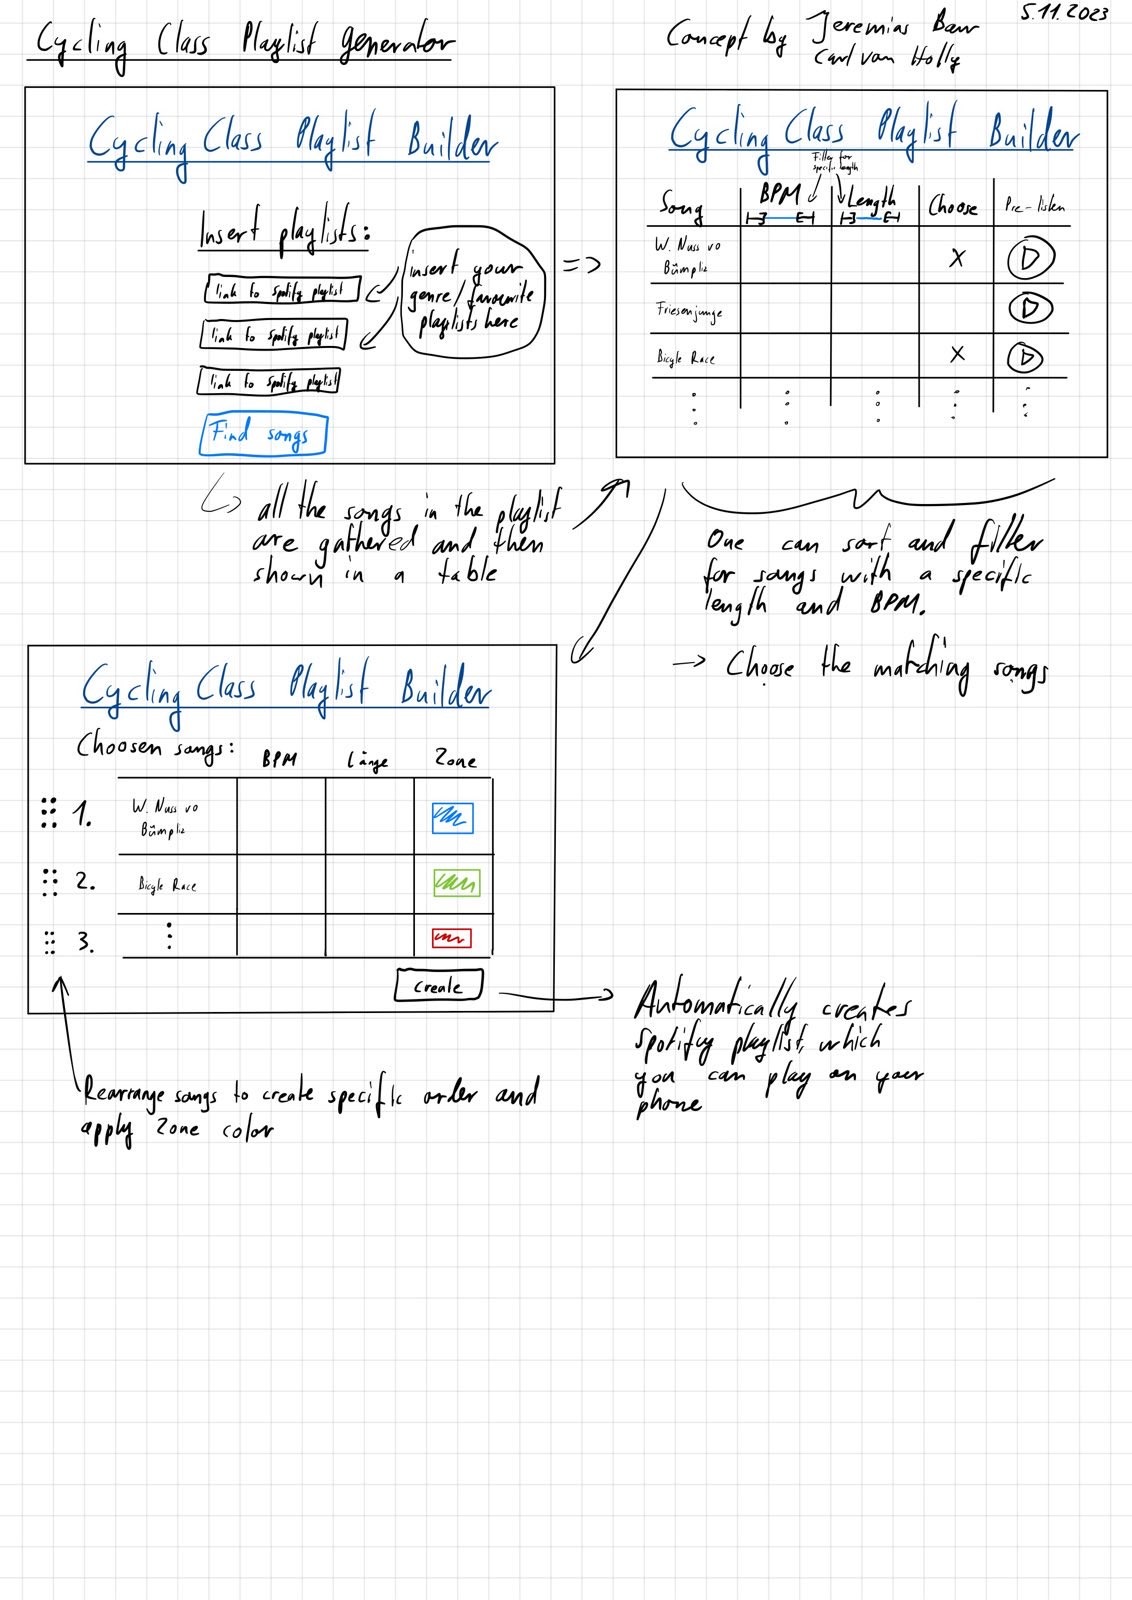 Cycling Class Playlist Generator
Concept by Jeremias Baur
Carl von Holly
5.11.2023
Cycling Class Playlist Builder
Insert playlists:
link to spotify playlist
link to spotify playlist
link to spotify playlist
Find songs
insert your
genre/favourite
playlists here
=>
Cycling Class Playlist Builder
Filter for
specific length
Song BPM Length Choose Pre-listen
W. Nuss vo
Bümpliz
X
Friesenjunge
Bicyle Race
X
all the songs in the playlist
are gathered and then
shown in a table
One can sort and filter
for songs with a specific
length and BPM.
→ Choose the matching songs
Cycling Class Playlist Builder
Choosen songs:
BPM Länge Zone
1. W. Nuss vo
Bümpliz
2. Bicyle Race
3.
Create
Automatically creates
spotify playlist, which
you can play on your
phone
Rearrange songs to create specific order and
apply zone color